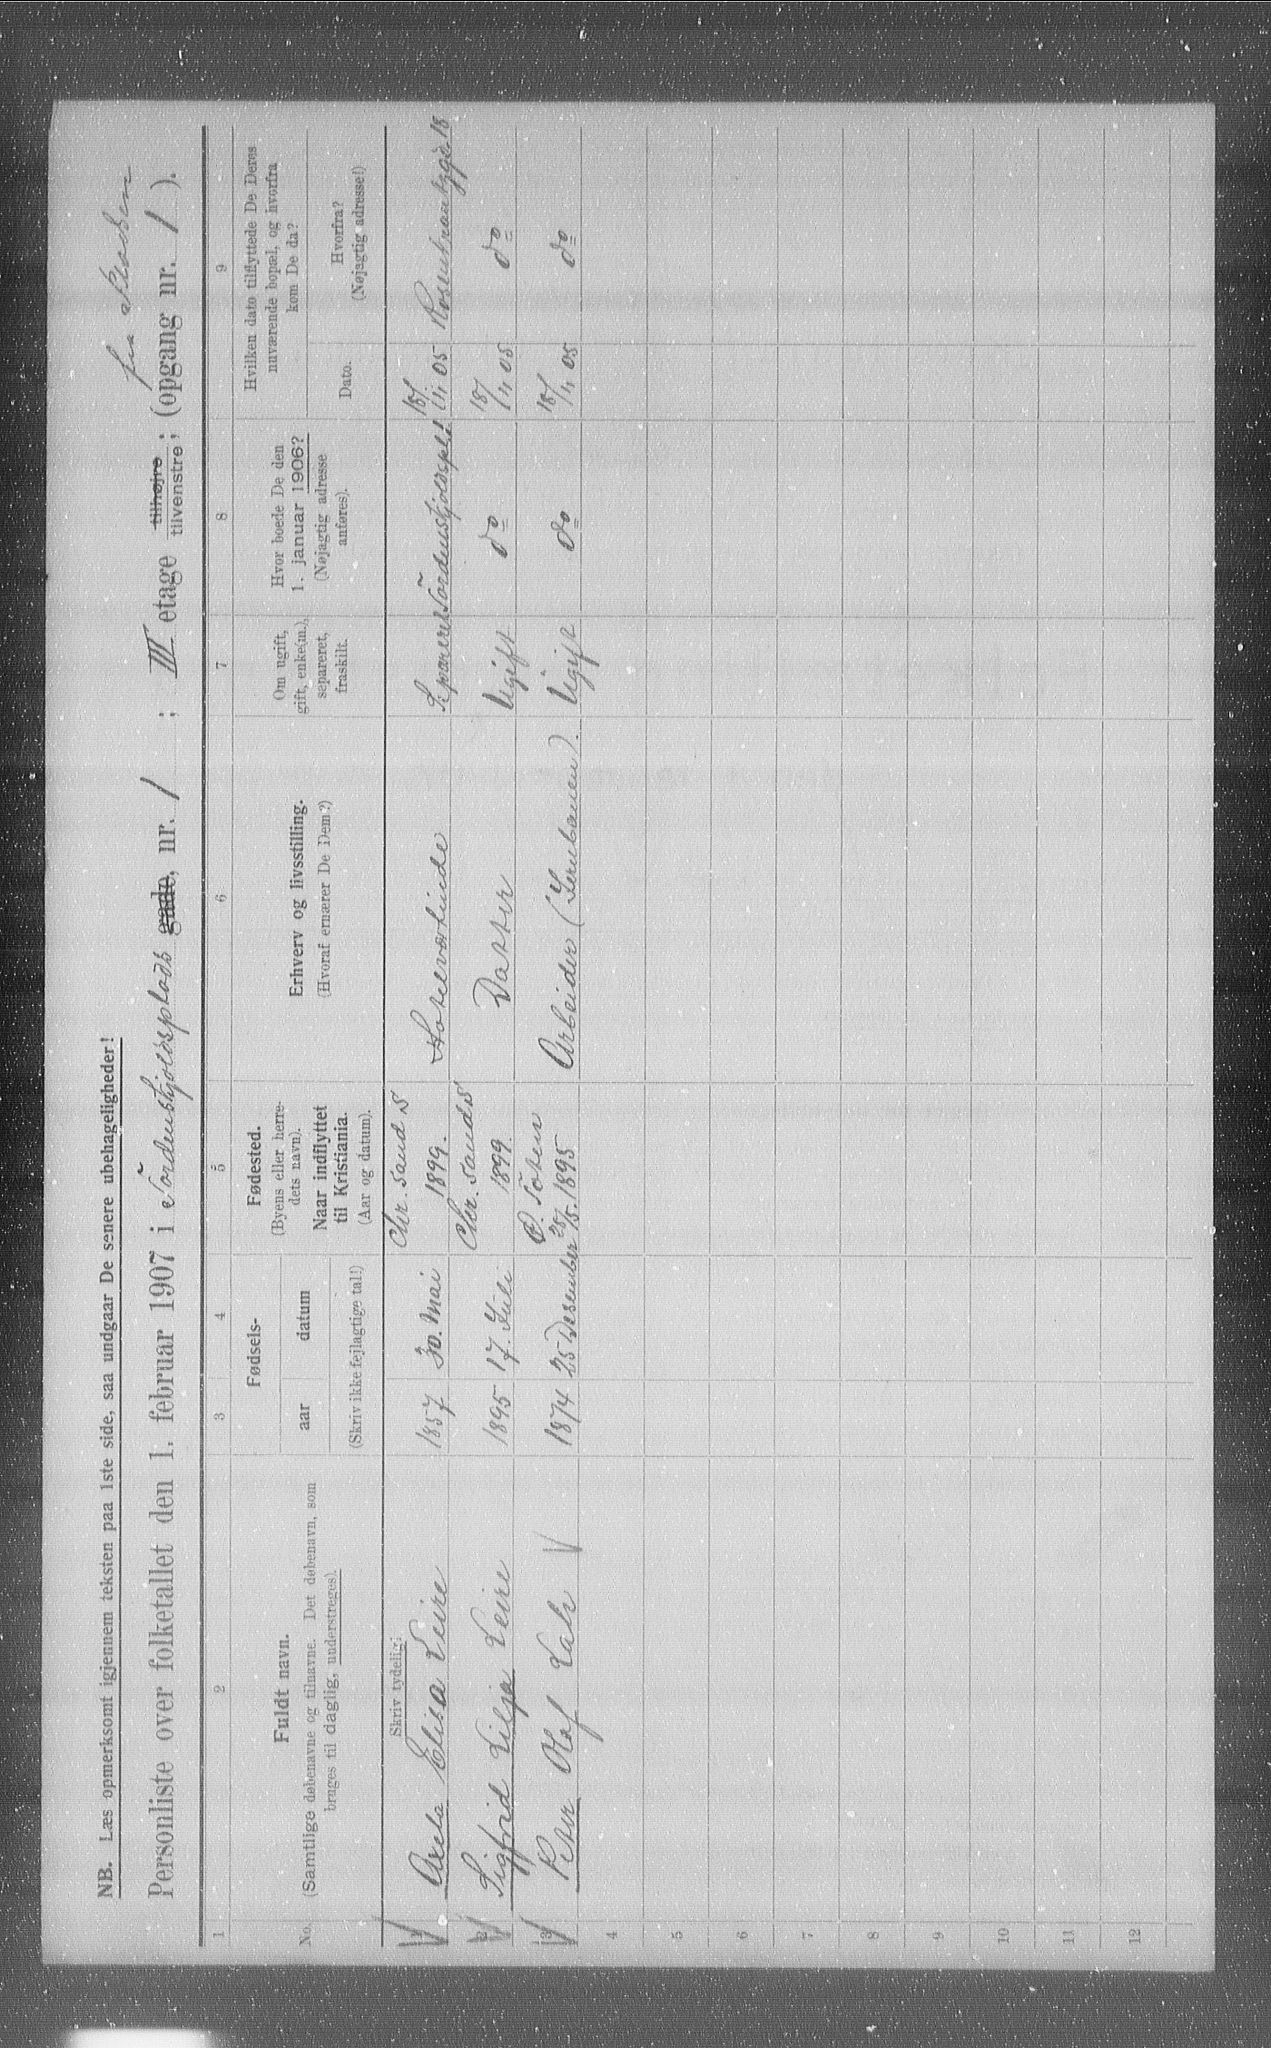 NB. Læs opmerksomt igjennem teksten paa 1ste side, saa undgaar De senere ubehageligheder!
fra pladsen
Personliste over folketallet den 1. februar 1907 i Tordenskjoldsplads gade, nr. 1 ; III etage tilhøjre ; (opgang nr. 1 ).
tilvenstre;
1 2 3 4 5 6 7 8 9
No.
Fuldt navn.
(Samtlige døbenavne og tilnavne. Det døbenavn, som
bruges til daglig, understreges).
Fødsels-
aar datum
(Skriv ikke fejlagtige tal!)
Fødested.
(Byens eller herre-
dets navn).
Naar indflyttet
til Kristiania.
(Aar og datum).
Erhverv og livsstilling.
(Hvoraf ernærer De Dem?)
Om ugift,
gift, enke(m.),
separeret,
fraskilt.
Hvor boede De den
1. januar 1906?
(Nøjagtig adresse
anføres).
Hvilken dato tilflyttede De Deres
nuværende bopæl, og hvorfra
kom De da?
Dato.
Hvorfra?
(Nøjagtig adresse!)
Skriv tydelig!
1 Axela Elisa Leire 1857 30. Mai Chr. Sand S 1899. Hotelvertinde Separeret Tordenskjoldspl. 1 18/11 05 Rosenkrantzgd 18
2 Sigfrid Lilja Leire 1895 17. Juli Chr. Sand S 1899. Datter Ugift do 18/11 05 do
3 Peter Olaf Lah 1874 25 Desember Ø. Toten 25/5. 1895 Arbeider (Jernbanen). Ugift do 18/11 05 do
4
5
6
7
8
9
10
11
12